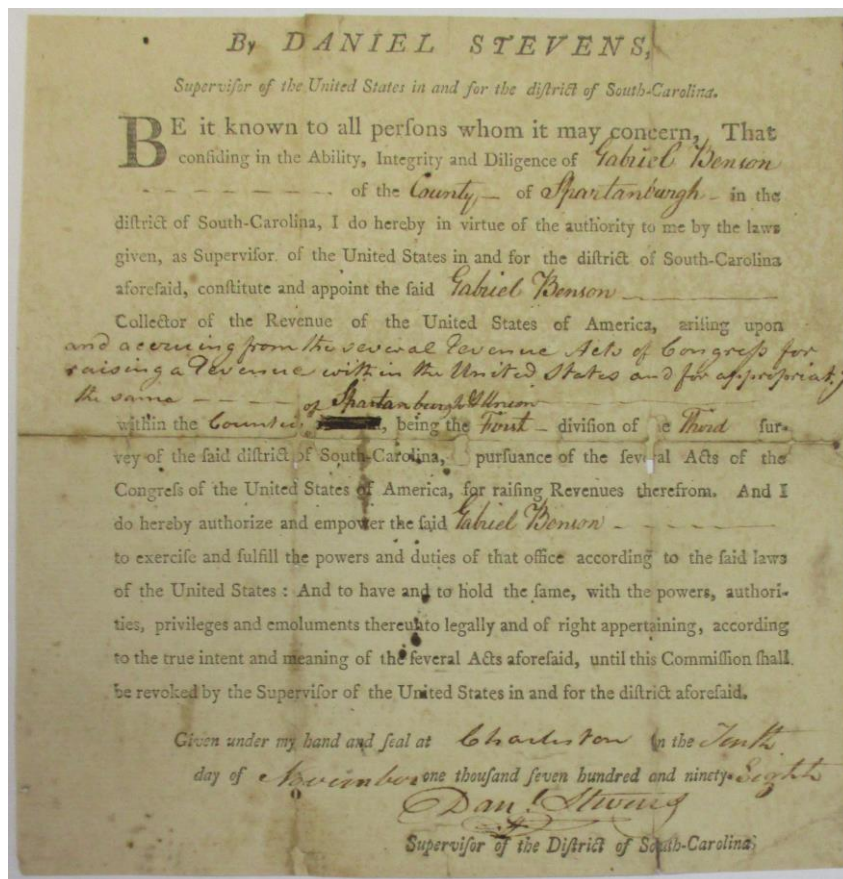 By DANIEL STEVENS,
Superviſor of the United States in and for the diſtrict of South-Carolina.
BE it known to all perſons whom it may concern, That
confiding in the Ability, Integrity and Diligence of Gabriel Benson
of the County of Spartanburgh in the
diſtrict of South-Carolina, I do hereby in virtue of the authority to me by the laws
given, as Superviſor of the United States in and for the diſtrict of South-Carolina
aforeſaid, conſtitute and appoint the ſaid Gabriel Benson
Collector of the Revenue of the United States of America, ariſing upon
and accruing from the several Revenue Acts of Congreſs for
raising a Revenue within the United States and for appropriat.g
the same
of Spartanburgh & Union
within the Counties, being the First division of the Third ſur-
vey of the ſaid diſtrict of South-Carolina, purſuance of the ſeveral Acts of the
Congreſs of the United States of America, for raiſing Revenues therefrom. And I
do hereby authorize and empower the ſaid Gabriel Benson
to exerciſe and fulfill the powers and duties of that office according to the ſaid laws
of the United States : And to have and to hold the ſame, with the powers, authori-
ties, privileges and emoluments thereunto legally and of right appertaining, according
to the true intent and meaning of the ſeveral Acts aforeſaid, until this Commiſſion ſhall
be revoked by the Superviſor of the United States in and for the diſtrict aforeſaid.
Given under my hand and ſeal at Charleston in the Tenth
day of November one thouſand ſeven hundred and ninety-Eight
Dan.l Stevens
Superviſor of the Diſtrict of South-Carolina;